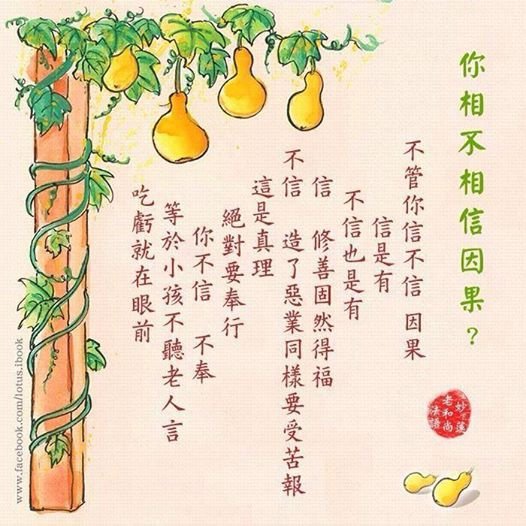 你相不相信因果？
不管你信不信 因果
信是有
不信也是有
信 修善固然得福
不信 造了惡業同樣要受苦報
這是真理
絕對要奉行
你不信 不奉
等於小孩不聽老人言
吃虧就在眼前
妙蓮
老和尚
法語
www.facebook.com/lotus.ibook